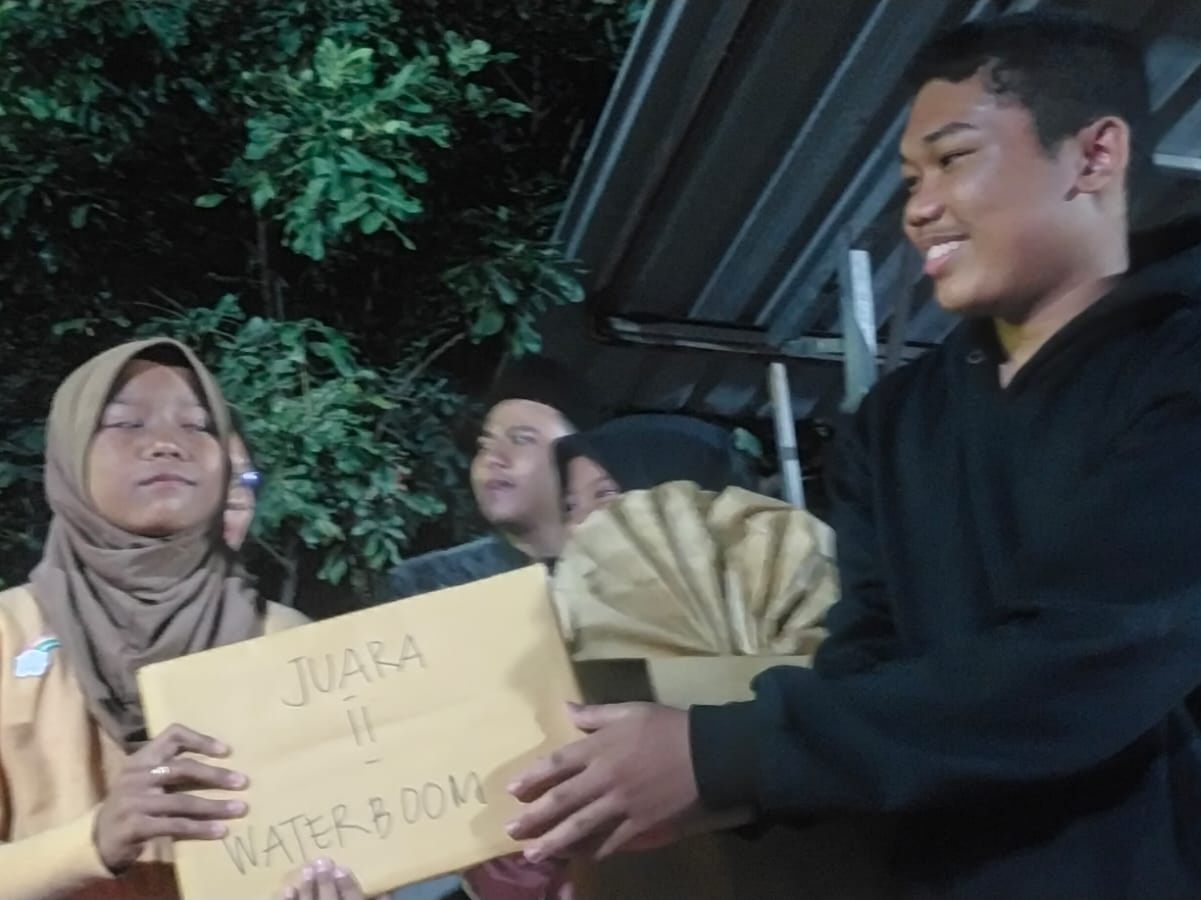 JUARA
II
WATERBOOM